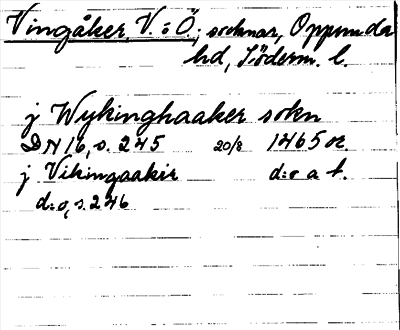 Vingåker, V. o Ö., socknar, Oppunda
hd, Söderm. l.
j Wykinghaaker sokn
DN 16, s. 245 20/8 1465 or
j Vikingaaker d:o a t.
d:o, s. 246